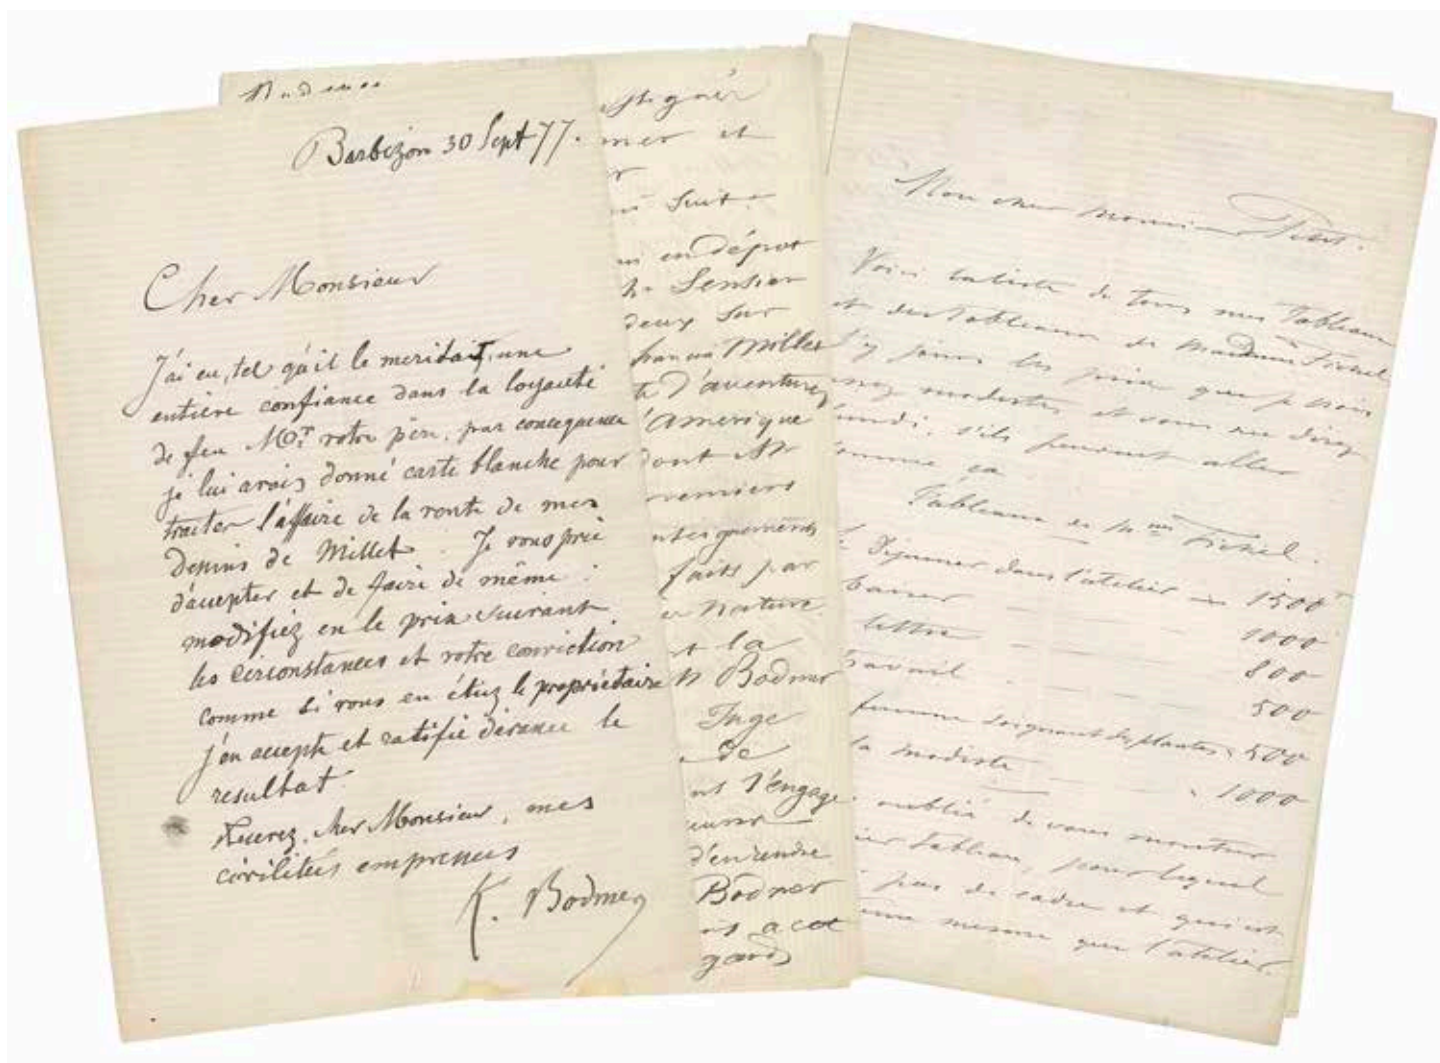 Barbizon 30 Sept 77.
Cher Monsieur
J'ai eu, tel qu'il le meritait, une
entière confiance dans la loyauté
de feu Mor votre père, par consequence
je lui avais donné carte blanche pour
traiter l'affaire de la vente de mes
dessins de Millet. Je vous prie
d'accepter et de faire de même :
modifiez en le prix suivant
les cirsonstances et votre conviction
comme si vous en étiez le propriétaire
j'en accepte et ratifie d'avance le
resultat
Recevez, cher Monsieur, mes
civilités empressées
K. Bodmer
mer et
suit
en dépot
Sensier
deux sur
Millet
d'aventures
l'amerique
dont Mr
premiers
faits par
nature
et la
Bodmer
Juge
de
l'engage
d'entendre
Bodmer
a cet
gard
Mon cher monsieur Petit.
Voici la liste de tous mes Tableaux
et des Tableaux de Madame Fichel
j'y joins les prix que je crois
assez modestes et vous me direz
lundi, s'ils peuvent aller
comme ça
Tableaux de Mme Fichel.
Déjeuner dans l'atelier 1500
1000
lettre 800
travail 500
femme soignant des plantes 500
la modiste 1000
oublié de vous montrer
tableau, pour lequel
pas de cadre et qui est
même mesure que l'atelier.